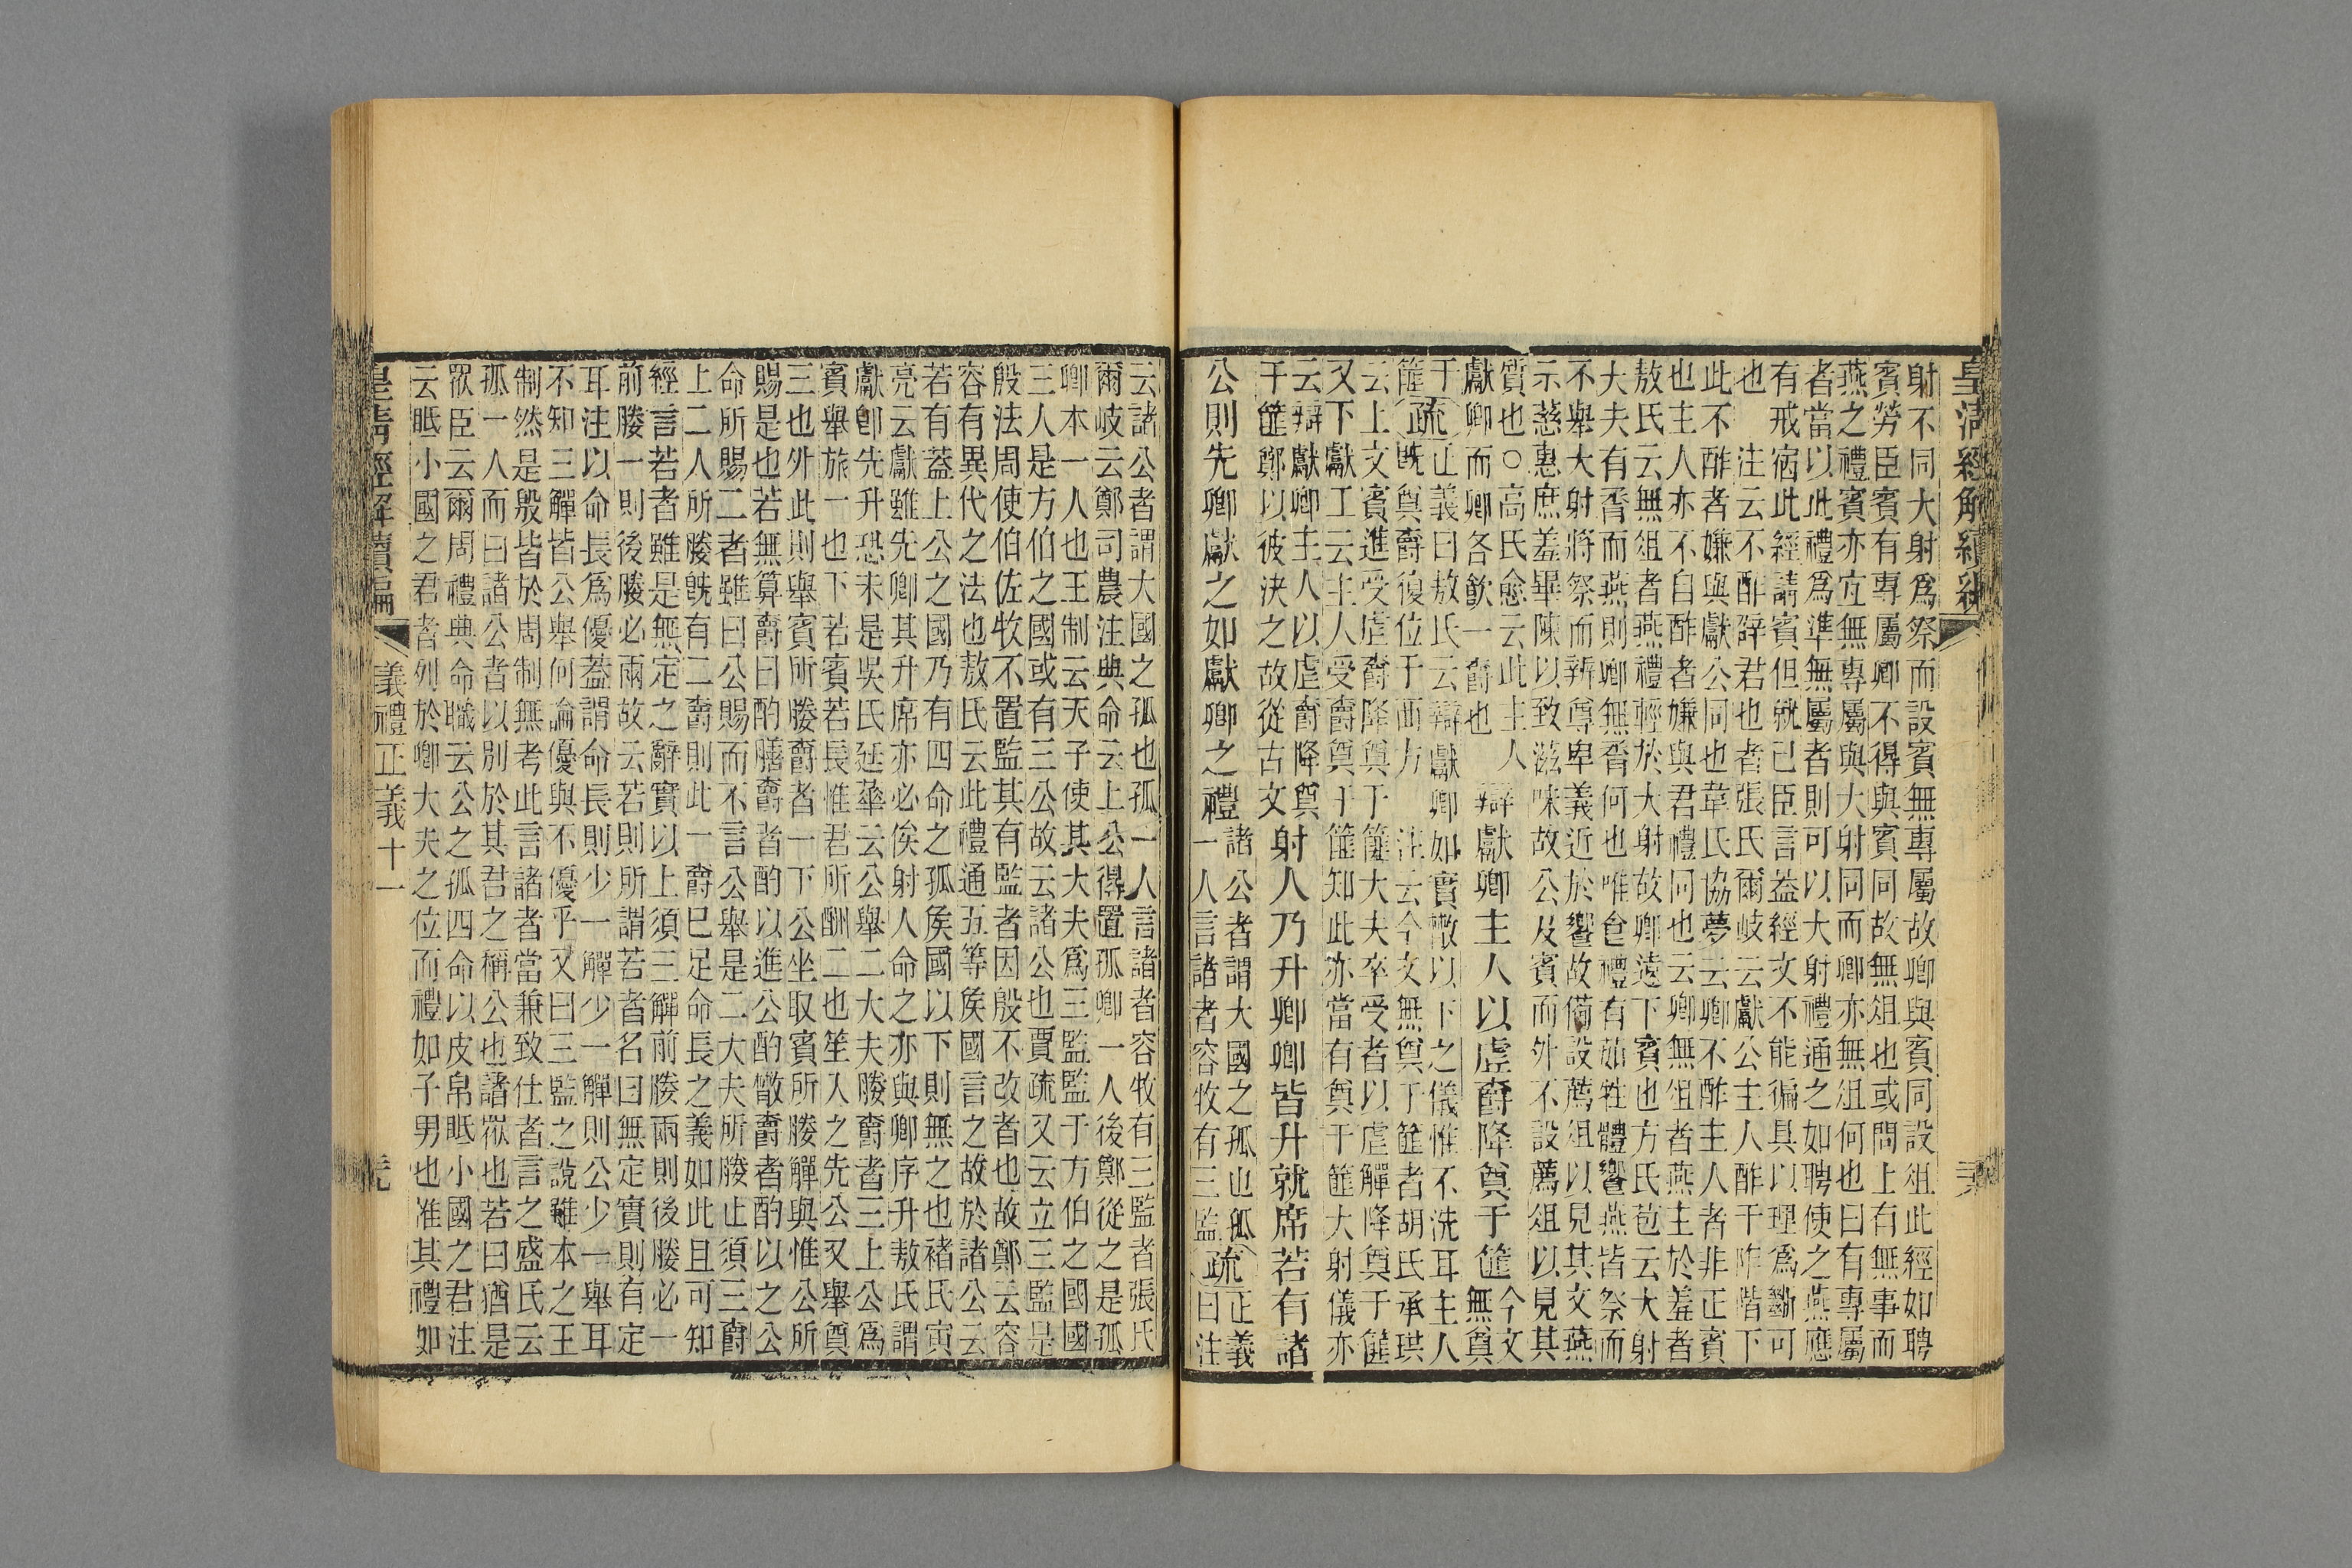 皇清經解續編
射不同大射爲祭而設賓無專屬故卿與賓同設俎此經如聘
賓勞臣賓有專屬卿不得與賓同故無俎也或問上有無事而
燕之禮賓亦宜無專屬與大射同而卿亦無俎何也曰有專屬
者當以此禮爲準無屬者則可以大射禮通之如聘使之燕應
有戒宿此經請賓但就已臣言葢經文不能徧具以理爲斷可
也 注云不酢辟君也者張氏爾岐云獻公主人酢于阼階下
此不酢者嫌與獻公同也韋氏協夢云卿不酢主人者非正賓
也主人亦不自酢者嫌與君禮同也云卿無俎者燕主於羞者
敖氏云無俎者燕禮輕於大射故卿遠下賓也方氏苞云大射
大夫有胾而燕則卿無胾何也唯食禮有茹牲體饗燕皆祭而
不舉大射將祭而辨尊卑義近於饗故備設薦俎以見其文燕
示慈惠庶羞畢陳以致滋味故公及賓而外不設薦俎以見其
質也○高氏愈云此主人
獻卿而卿各飲一爵也
辯獻卿主人以虛爵降奠于篚
今文
無奠
于
篚
疏
正義曰敖氏云辯獻卿如賓儀以下之儀惟不洗耳主人
既奠爵復位于西方 注云今文無奠于篚者胡氏承珙
云上文賓進受虛爵降奠于篚大夫卒受者以虛觶降奠于篚
又下獻工云主人受爵奠于篚知此亦當有奠于篚大射儀亦
云辯獻卿主人以虛爵降奠
于篚鄭以彼決之故從古文
射人乃升卿卿皆升就席若有諸
公則先卿獻之如獻卿之禮
諸公者謂大國之孤也孤
一人言諸者容牧有三監
疏
正義
曰注
云諸公者謂大國之孤也孤一人言諸者容牧有三監者張氏
爾岐云鄭司農注典命云上公得置孤卿一人後鄭從之是孤
卿本一人也王制云天子使其大夫爲三監監于方伯之國國
三人是方伯之國或有三公故云諸公也賈疏又云立三監是
殷法周使伯佐牧不置監其有監者因殷不改者也故鄭云容
容有異代之法也敖氏云此禮通五等矦國言之故於諸公云
若有葢上公之國乃有四命之孤矦國以下則無之也褚氏寅
亮云獻雖先卿其升席亦必俟射人命之亦與卿序升敖氏謂
獻卽先升恐未是吳氏廷華云公舉二大夫媵爵者三上公爲
賓舉旅一也下若賓若長惟君所酬二也笙入之先公又舉奠
三也外此則舉賓所媵爵者一下公坐取賓所媵觶與惟公所
賜是也若無算爵曰酌膳爵者酌以進公酌散爵者酌以之公
命所賜二者雖曰公賜而不言公舉是二大夫所媵止須三爵
上二人所媵旣有二爵則此一爵已足命長之義如此且可知
經言若者雖是無定之辭實以上須三觶前媵兩則後媵必一
前媵一則後媵必兩故云若則所謂若者名曰無定實則有定
耳注以命長爲優葢謂命長則少一觶少一觶則公少一舉耳
不知三觶皆公舉何論優與不優乎又曰三監之說雖本之王
制然是殷皆於周制無考此言諸者當兼致仕者言之盛氏云
孤一人而曰諸公者以別於其君之稱公也諸猶衆也若曰猶是
眾臣云爾周禮典命職云公之孤四命以皮帛眡小國之君注
云眡小國之君者列於卿大夫之位而禮如子男也准其禮如
皇清經解續編
儀禮正義十一